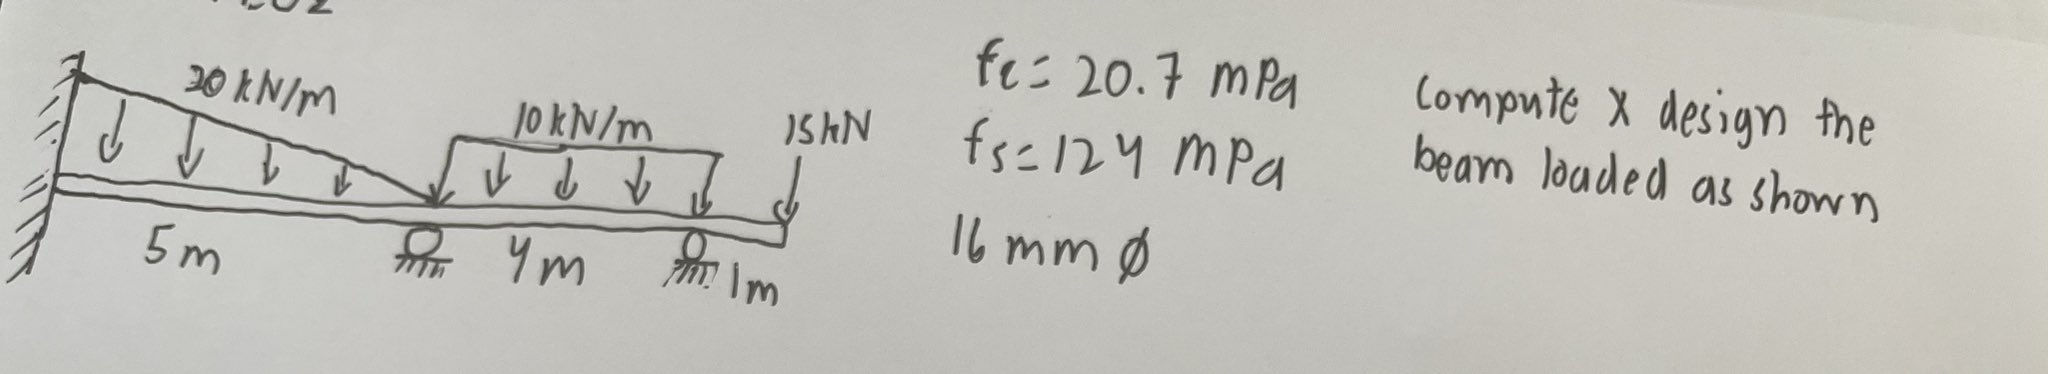 20 kN/m
10 kN/m
15 kN
5m
4m
1m
fc = 20.7 mPa
fs = 124 mPa
16 mm ϕ
Compute & design the
beam loaded as shown